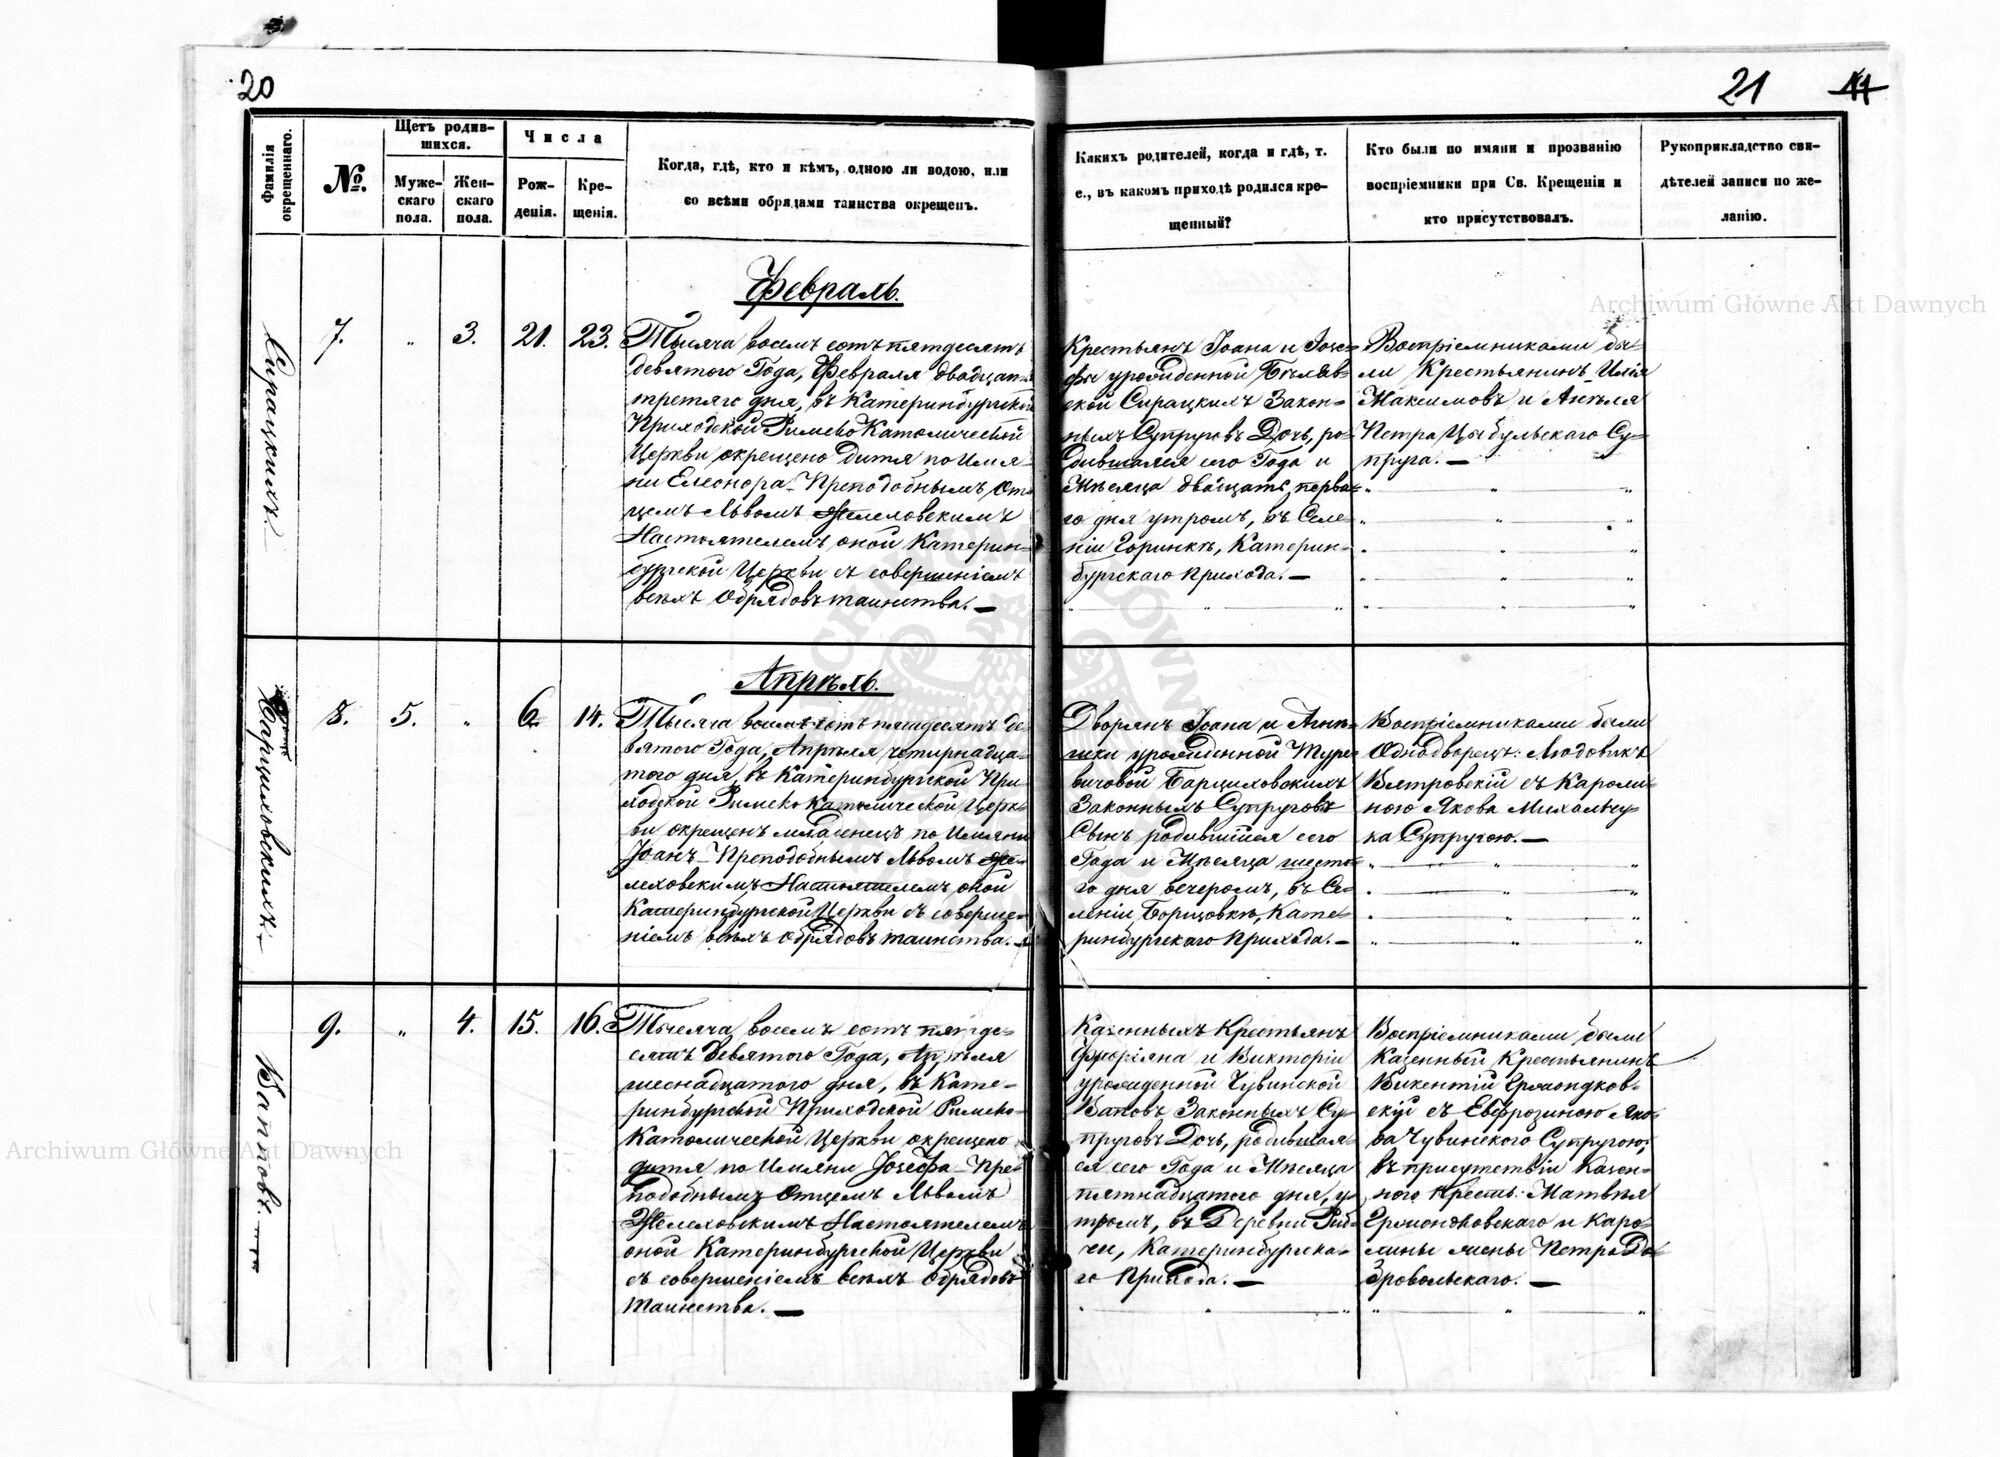 20
21
11
Фамилія окрещеннаго.
№.
Щетъ родив-
шихся.
Муже-
скаго
пола.
Жен-
скаго
пола.
Числа
Рож-
денія.
Кре-
щенія.
Когда, гдѣ, кто и кѣмъ, одною ли водою, или
со всѣми обрядами таинства окрещенъ.
Какихъ родителей, когда и гдѣ, т.
е., въ какомъ приходѣ родился кре-
щенный?
Кто были по имяни и прозванію
воспріемники при Св. Крещеніи и
кто присутствовалъ.
Рукоприкладство сви-
дѣтелей записи по же-
ланію.
Archiwum Główne Akt Dawnych
Февраль.
Сирацкихъ.
7.
"
3.
21.
23.
Тысяча восемъ сотъ пятдесятъ
девятого Года, Февраля двадцать
третяго дня, въ Катеринбургской
Приходской Римско Католической
Церкви окрещено дитя по Имя-
ни Елеонора - Преподобнымъ От-
цемъ Львомъ Желеховскимъ
Настоятелемъ оной Катерин-
бургской Церкви съ совершеніемъ
всѣхъ Обрядовъ таинства. —
Крестьянъ Іоана и Іозе-
фы урожденной Бѣляв-
ской Сирацкихъ Закон-
ныхъ Супруговъ Дочь, ро-
дившаяся сего Года и
Мѣсяца двадцать перва-
го дня утромъ, въ Селе-
ніи Горинкѣ, Катерин-
бургскаго Прихода. —
Воспріемниками бы-
ли Крестьянинъ Илія
Максимовъ и Анѣля
Петра Цыбульскаго Су-
пруга. —
Апрѣль.
Барциховскихъ.
8.
5.
"
6.
14.
Тысяча восемъ сотъ пятдесятъ де-
вятого Года, Апрѣля четырнадца-
того дня, въ Катеринбургской При-
ходской Римско Католической Церк-
ви окрещенъ младенецъ по Имяни
Іоанъ - Преподобнымъ Львомъ Же-
леховскимъ Настоятелемъ оной
Катеринбургской Церкви съ соверше-
ніемъ всѣхъ Обрядовъ таинства. —
Дворянъ Іоана и
урожденной
Барциховскихъ
Законныхъ Супруговъ
Сынъ родившійся сего
Года и Мѣсяца шесто-
го дня вечеромъ, въ Се-
леніи Борщовкѣ, Кате-
ринбургскаго Прихода. —
Воспріемниками были
Однодворецъ: Людовикъ
Вѣтровскій съ Кароли-
ною Якова Михальчу-
ка Супругою. —
Baповъ
9.
"
4.
15.
16.
Тысяча восемъ сотъ пятде-
сятъ девятого Года, Апрѣля
шеснадцатого дня, въ Кате-
ринбургской Приходской Римско-
Католической Церкви окрещено
дитя по Имяни Іозефа - Пре-
подобнымъ Отцемъ Львомъ
Желеховскимъ Настоятелемъ
оной Катеринбургской Церкви
съ совершеніемъ всѣхъ Обрядовъ
таинства. —
Казенныхъ Крестьянъ
Флоріяна и Викторіи
урожденной Чувинской
Ваповъ Законныхъ Су-
пруговъ Дочь, родившая-
ся сего Года и Мѣсяца
пятнадцатого дня, у-
тромъ, въ Деревни Рыд-
чи, Катеринбургска-
го Прихода. —
Воспріемниками были
Казенный Крестьянинъ
Викентій Ермондков-
скій съ Евфрозиною Яко-
ва Чувинского Супругою;
въ присутствіи Казен-
ного Кресть: Матвѣя
Ермондковскаго и Каро-
лины жены Петра До-
бровольскаго. —
Archiwum Główne Akt Dawnych